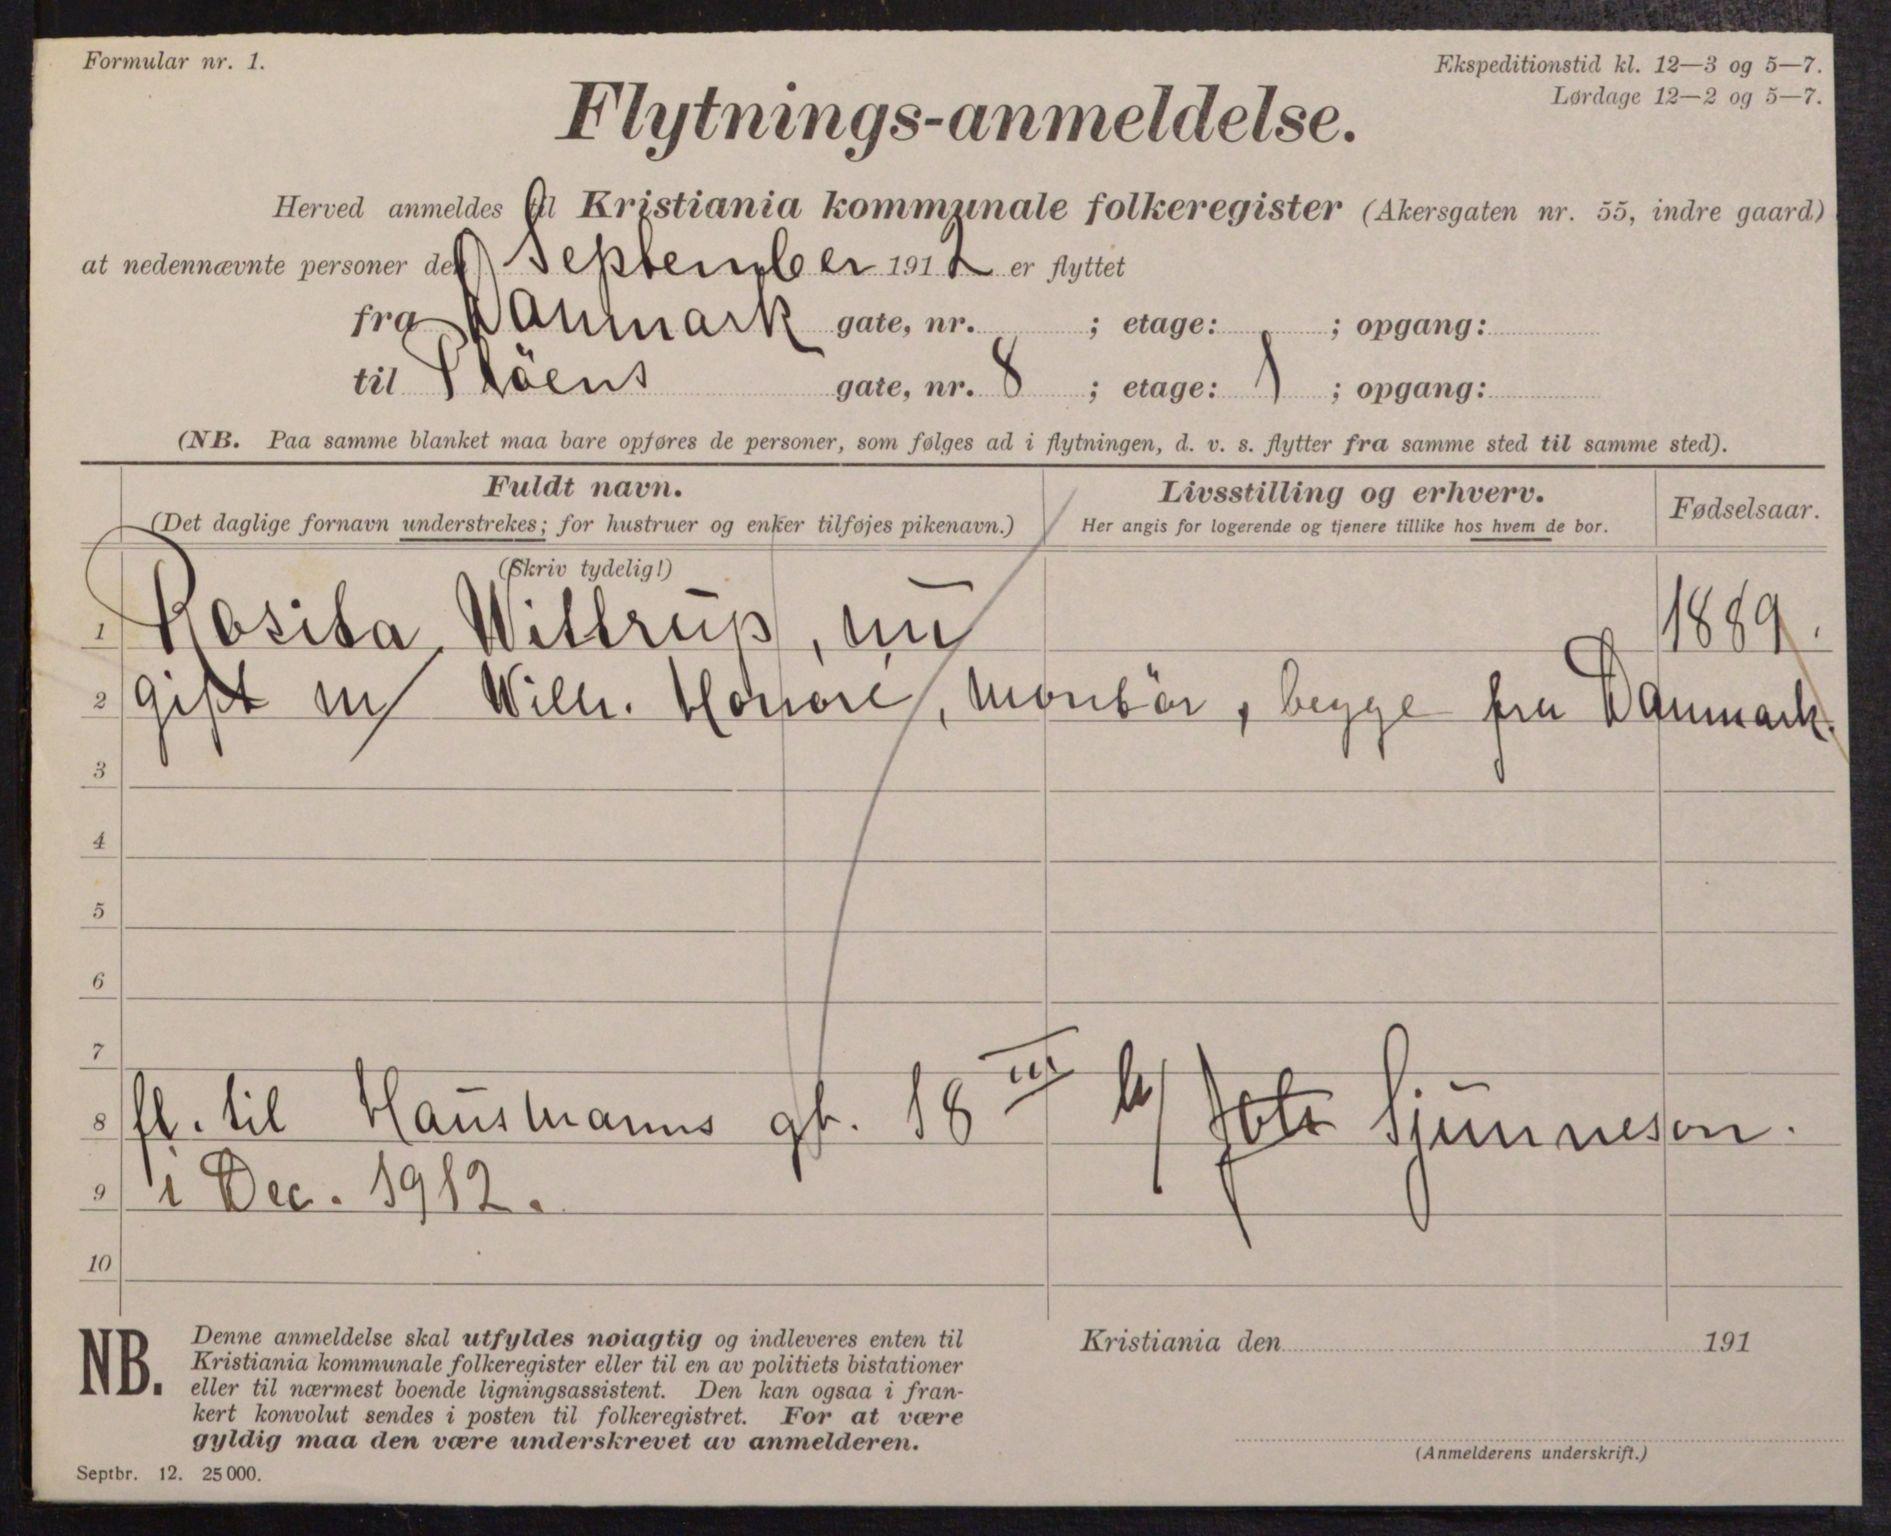 Formular nr. 1.
Ekspeditionstid kl. 12—3 og 5—7.
Lørdage 12—2 og 5—7.
Flytnings-anmeldelse.
Herved anmeldes til Kristiania kommunale folkeregister (Akersgaten nr. 55, indre gaard)
at nedennævnte personer den September 1912 er flyttet
fra Danmark gate, nr. ; etage: ; opgang:
til Pløens gate, nr. 8 ; etage: 1 ; opgang:
(NB. Paa samme blanket maa bare opføres de personer, som følges ad i flytningen, d. v. s. flytter fra samme sted til samme sted).
Fuldt navn.
(Det daglige fornavn understrekes; for hustruer og enker tilføjes pikenavn.)
Livsstilling og erhverv.
Her angis for logerende og tjenere tillike hos hvem de bor.
Fødselsaar.
(Skriv tydelig!)
1 Rosita Wittrup, nu 1889.
2 gift m/ Wilh. Honoré, Montör, begge fra Danmark.
3
4
5
6
7
8 fl. til Hausmanns gt. 18 III h/ Sjunneson.
9 i Dec. 1912.
10
NB. Denne anmeldelse skal utfyldes nøiagtig og indleveres enten til
Kristiania kommunale folkeregister eller til en av politiets bistationer
eller til nærmest boende ligningsassistent. Den kan ogsaa i fran-
kert konvolut sendes i posten til folkeregistret. For at være
gyldig maa den være underskrevet av anmelderen.
Kristiania den 191
(Anmelderens underskrift.)
Septbr. 12. 25 000.